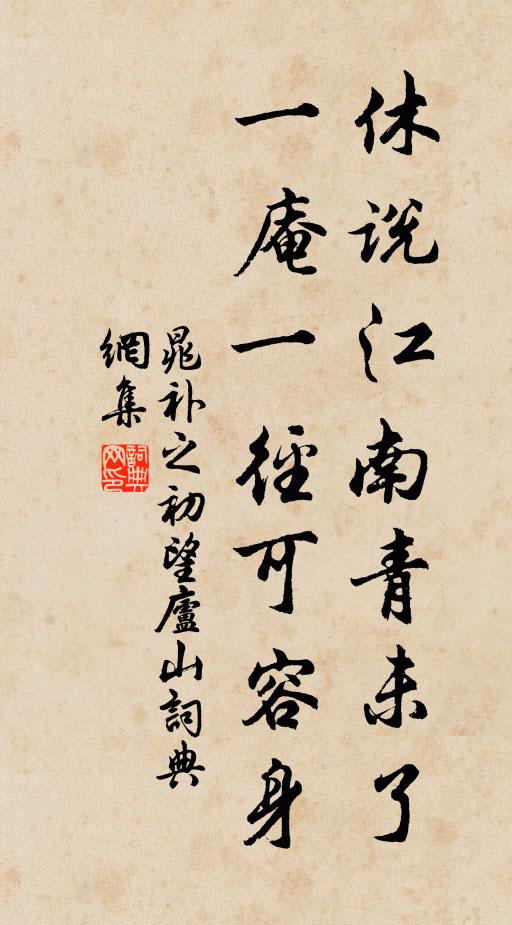 休说江南青未了
一庵一径可容身
晁补之初望廬山詞典
網集
詞典网印